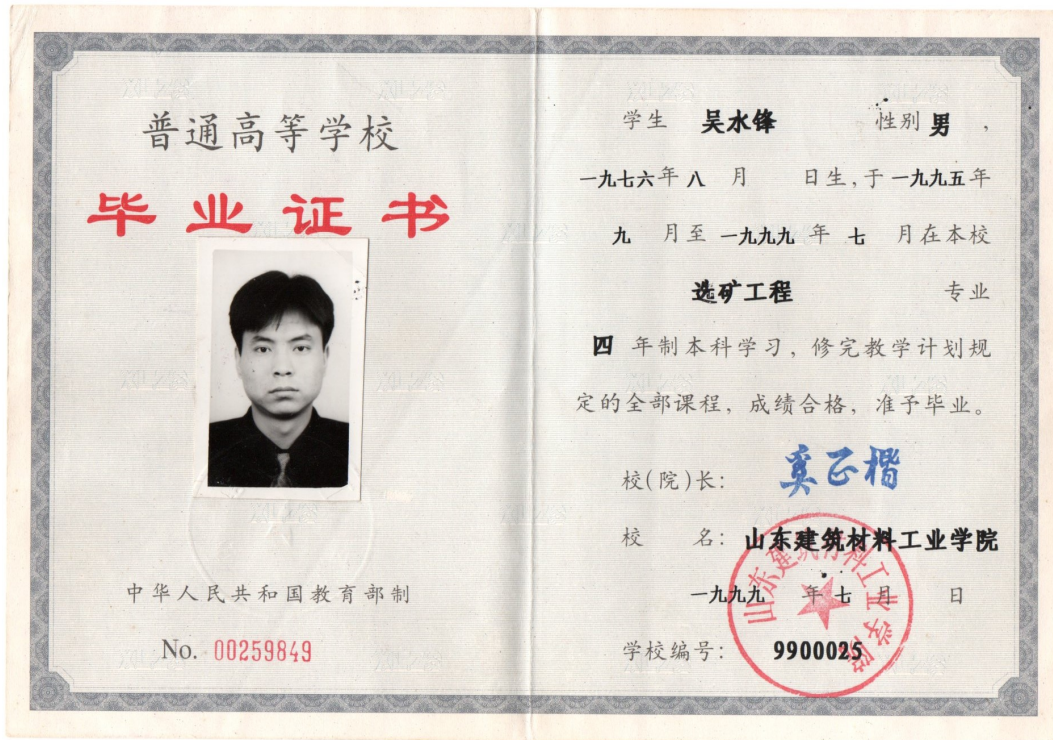 普通高等学校
毕业证书
中华人民共和国教育部制
No. 00259849
学生 吴水锋 性别 男 ,
一九七六年 八 月 日生,于 一九九五年
九 月至 一九九九 年 七 月在本校
选矿工程 专业
四 年制本科学习，修完教学计划规
定的全部课程，成绩合格，准予毕业。
校(院)长：奚正楷
校 名：山东建筑材料工业学院
一九九九 年 七 月 日
学校编号： 9900025
山东建筑材料工业学院